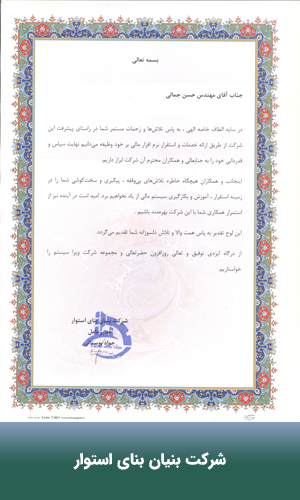 بسمه تعالی
جناب آقای مهندس حسن جمالی
در سایه الطاف خاصه الهی ، به پاس تلاش‌ها و زحمات مستمر شما در راستای پیشرفت این
شرکت از طریق ارائه خدمات و استقرار نرم افزار مالی بر خود وظیفه می‌دانیم نهایت سپاس و
قدردانی خود را به جنابعالی و همکاران محترم آن شرکت ابراز داریم.
اینجانب و همکاران هیچگاه خاطره تلاش‌های بی‌وقفه ، پیگیری و سخت‌کوشی شما را در
زمینه استقرار ، آموزش و بکارگیری سیستم مالی از یاد نخواهیم برد. امید است در آینده نیز از
استمرار همکاری شما با این شرکت بهره‌مند باشیم .
این لوح تقدیر به پاس همت والا و تلاش دلسوزانه شما تقدیم می‌گردد.
از درگاه ایزدی توفیق و تعالی روزافزون حضرتعالی و مجموعه شرکت ویرا سیستم را
خواستاریم.
شرکت بنیان بنای استوار
شرکت بنیان بنای استوار